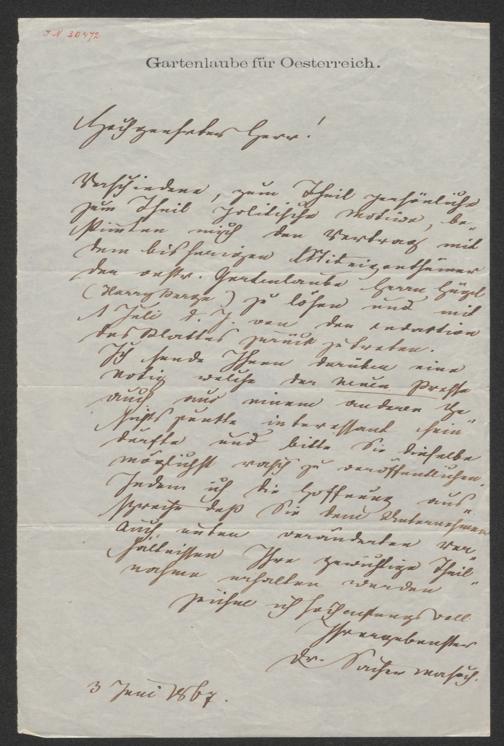 I N 30472
Gartenlaube für Oesterreich.
Hochgeehrter Herr!
Verschiedene, zum Theil persönliche
zum Theil politische Motive, be-
stimmten mich den Vertrag mit
dem bisherigen Miteigenthümer
der oestr. Gartenlaube Herrn Hügel
zu lösen und mit
1 Juli d. J. von der Redaktion
des Blattes zurück zu treten.
Ich sende Ihnen darüber eine
Notiz welche der neuen Presse
auch aus einem anderen Ge-
sichtspunkte interessant sein
dürfte und bitte Sie dieselbe
möglichst rasch zu veröffentlichen.
Indem ich die Hoffnung aus-
spreche daß Sie dem Unternehmen
auch unter veränderten Ver-
hältnissen Ihre gewichtige Theil-
nahme erhalten werden
zeichne ich hochachtungsvoll
Ihr ergebenster
Dr. Sacher Masoch.
3 Juni 1867.